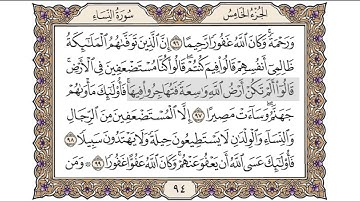 الجزء الخامس
سورة النساء
ورحمة وكان الله غفورا رحيما ٩٦ إن الذين توفىهم الملىئكة
ظالمى أنفسهم قالوا فيم كنتم قالوا كنا مستضعفين فى الأرض
قالوا ألم تكن أرض الله وسعة فتهاجروا فيها فأولئك مأوىهم
جهنم وساءت مصيرا ٩٧ إلا المستضعفين من الرجال
والنساء والولدن لا يستطيعون حيلة ولا يهتدون سبيلا ٩٨
فأولئك عسى الله أن يعفو عنهم وكان الله عفوا غفورا ٩٩
٩٤